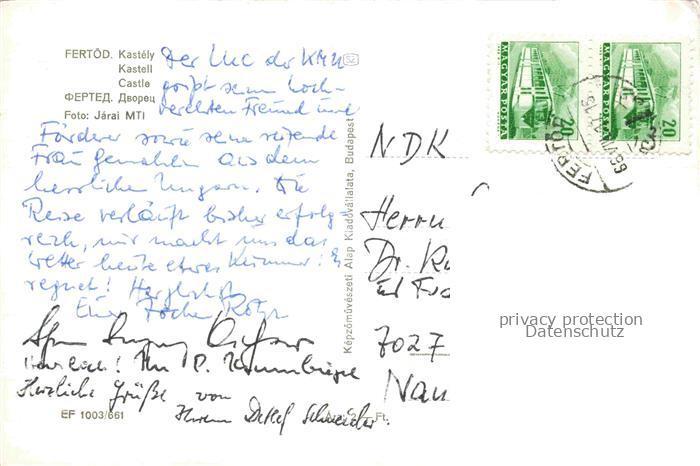 FERTŐD. Kastély
Kastell
Castle
ФЕРТЕД. Дворец
Foto: Járai MTI
Der LKC der KMU
grüßt seinen hoch-
verehrten Freund und
Förderer sowie seine reizende
Frau Gemahlin aus dem
herrlichen Ungarn. Die
Reise verläuft bisher erfolg-
reich, nur macht uns das
Wetter heute etwas Kummer: Es
regnet! Herzlichst
Ihr P. Krumbiegel
Herzliche Grüße von
Ihrem Detlef Schneider.
EF 1003/661
Ára: 2,- Ft.
Képzőművészeti Alap Kiadóvállalata, Budapest
MAGYAR POSTA
20
MAGYAR POSTA
20
FERTŐD
NDK
Herrn
Dr.
7027
privacy protection
Datenschutz